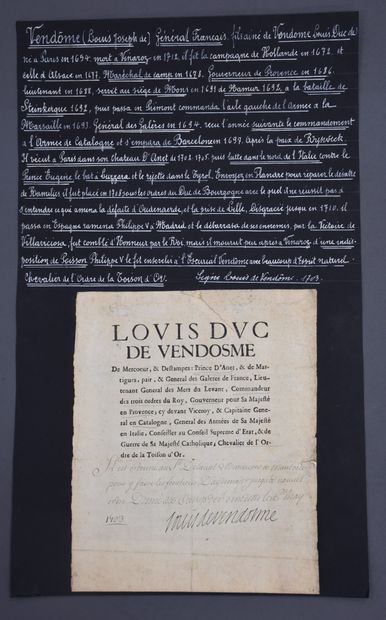 Vendôme (Louis Joseph de) Général Français, fils aîné de Vendome Louis Duc de
né à Paris en 1654 mort à Vinaroz en 1712, il fit la campagne de Hollande en 1672, et
celle d'Alsace en 1677. Maréchal de camp en 1678. Gouverneur de Provence en 1686.
lieutenant en 1688, servit au siège de Mons en 1691 de Namur 1692, à la bataille de
Steinkerque 1692, puis passa en Piémont commanda l'aile gauche de l'Armée à la
Marsaille en 1693. Général des Galères en 1694, reçu l'année suivante le commandement
de l'Armée de Catalogne et s'empara de Barcelone en 1697. Après la paix de Ryswick
Il vécut à Paris dans son chateau d'Anet de 1702, 1705, puis lutte dans le nord de l'Italie contre le
Prince Eugène le bat à Luzzara et le rejette dans le Tyrol, Envoyé en Flandre pour réparer le désastre
de Ramillies il fut placé en 1708 sous les ordres du Duc de Bourgogne avec le quel d'ne réussit pas à
s'entendre ce qui amena la défaite d'Oudenaarde, et la prise de Lille, Disgracié jusqu'en 1710, il
passa en Espagne ramena Philippe V à Madrid et le débarrassa de ses ennemis, par la Victoire de
Villaviciosa, fut comblé d'Honneur par le Roi mais il mourut peu après à Vinaroz d'une indi-
position de Poisson Philippe V le fit enterrer à l'Escurial Vendôme avec beaucoup d'Esprit naturel
Chevalier de l'Ordre de la Toison d'Or. Signé Louis de Vendôme. 1703.
LOVIS DVC
DE VENDOSME
De Mercoeur, & Destampes: Prince D'Anet, & de Mar-
tigues, pair, & General des Galeres de France, Lieu-
tenant General des Mers du Levant, Commandeur
des trois ordres du Roy, Gouverneur pour Sa Majesté
en Provence, cy devant Viceroy, & Capitaine Gene-
ral en Catalogne, General des Armées de Sa Majesté
en Italie, Conseiller au Conseil Supreme d'Etat, & de
Guerre de Sa Majesté Catholique, Chevalier de l'Or-
dre de la Toison d'Or.
Il est ordonné au Sr
pour y faire les fonctions jusqu'à nouvel
ordre May
1703 Louis de vendosme